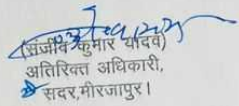 (संजीव कुमार यादव)
अतिरिक्त अधिकारी,
सदर,मीरजापुर।